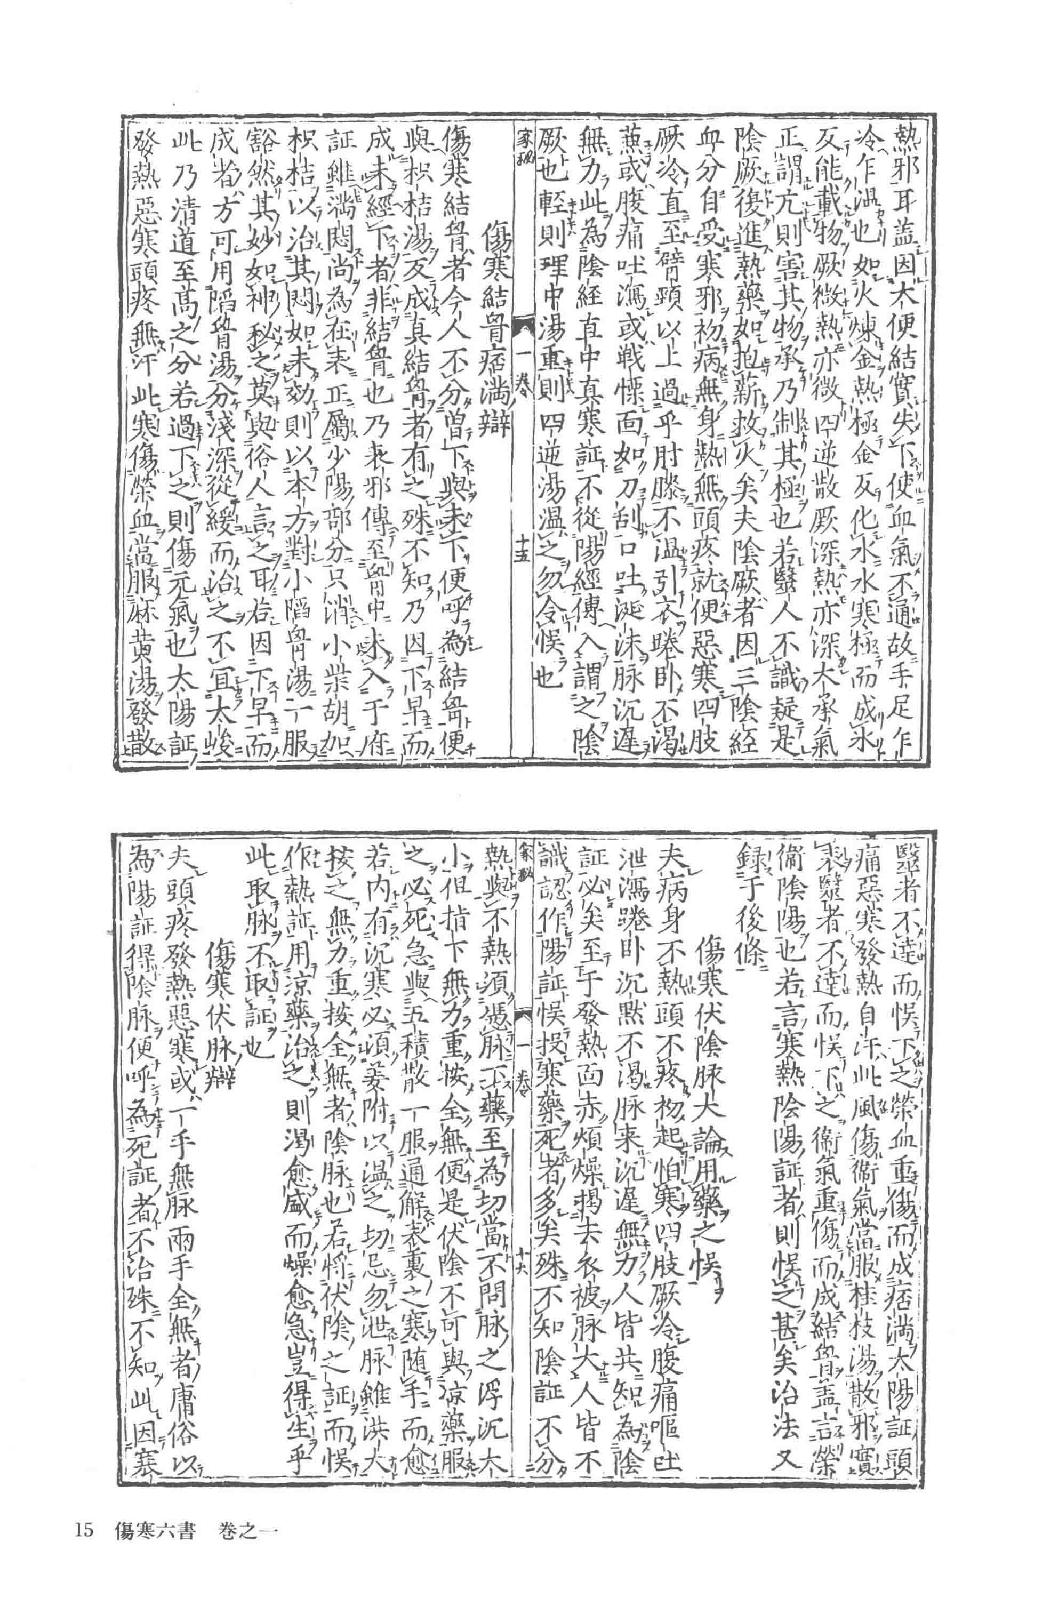 熱邪耳盖因大便結實失下使血氣不通故手足乍
冷乍温也如火煉金熱極金反化水水寒極而成氷
反能載物厥微熱亦微四逆散厥深熱亦深大承氣
正謂亢則害其物承乃制其極也若醫人不識疑是
陰厥復進熱藥如抱薪救火矣夫陰厥者因三陰経
血分自受寒邪初病無身熱無頭疼就便惡寒四肢
厥冷直至臂頸以上過乎肘膝不温引衣踡卧不渴
蒸或腹痛吐瀉或戦慄面如刀刮口吐涎沫脉沉遲
無力此為陰経直中真寒証不從陽經傳入謂之陰
厥也輕則理中湯重則四逆湯温之勿令悞也
家秘 一卷 十五
傷寒結胷痞滿辯
傷寒結胷者今人不分曽下與未下便呼為結胷便
與枳桔湯反成真結胷者有之殊不知乃因下早而
成未經下者非結胷也乃表邪傳至胷中未入于府
証雖滿悶尚為在表正屬少陽部分只消小柴胡加
枳桔以治其悶如未効則以本方對小陷胷湯一服
豁然其妙如神秘之莫與俗人言之耳若因下早而
成者方可用陷胷湯分淺深從緩而治之不宜太峻
此乃清道至髙之分若過下之則傷元氣也太陽証
發熱惡寒頭疼無汗此寒傷榮血當服麻黄湯發散
醫者不達而悞下之榮血重傷而成痞滿太陽証頭
痛惡寒發熱自汗此風傷衛氣當服桂枝湯散邪實
表醫者不達而悞下之衛氣重傷而成結胷盖言榮
衛陰陽也若言寒熱陰陽証者則悞之甚矣治法又
録于後條
傷寒伏陰脉大論用藥之悞
夫病身不熱頭不疼初起怕寒四肢厥冷腹痛嘔吐
泄瀉踡卧沉默不渴脉来沉遲無力人皆共知為陰
証必矣至于發熱面赤煩燥揭去衣被脉大人皆不
識認作陽証悞投寒藥死者多矣殊不知陰証不分
家秘 一卷 十六
熱與不熱須憑脉下藥至為切當不問脉之浮沉大
小但指下無力重按全無便是伏陰不可與凉藥服
之必死急與五積散一服通解表裏之寒随手而愈
若内有沉寒必須姜附以温之切忌勿泄脉雖洪大
按之無力重按全無者陰脉也若將伏陰之証而悞
作熱証用凉藥治之則渴愈盛而燥愈急豈得生乎
此取脉不取証也
傷寒伏脉辯
夫頭疼發熱惡寒或一手無脉兩手全無者庸俗以
為陽証得陰脉便呼為死証者不治殊不知此因寒
15 傷寒六書 卷之一